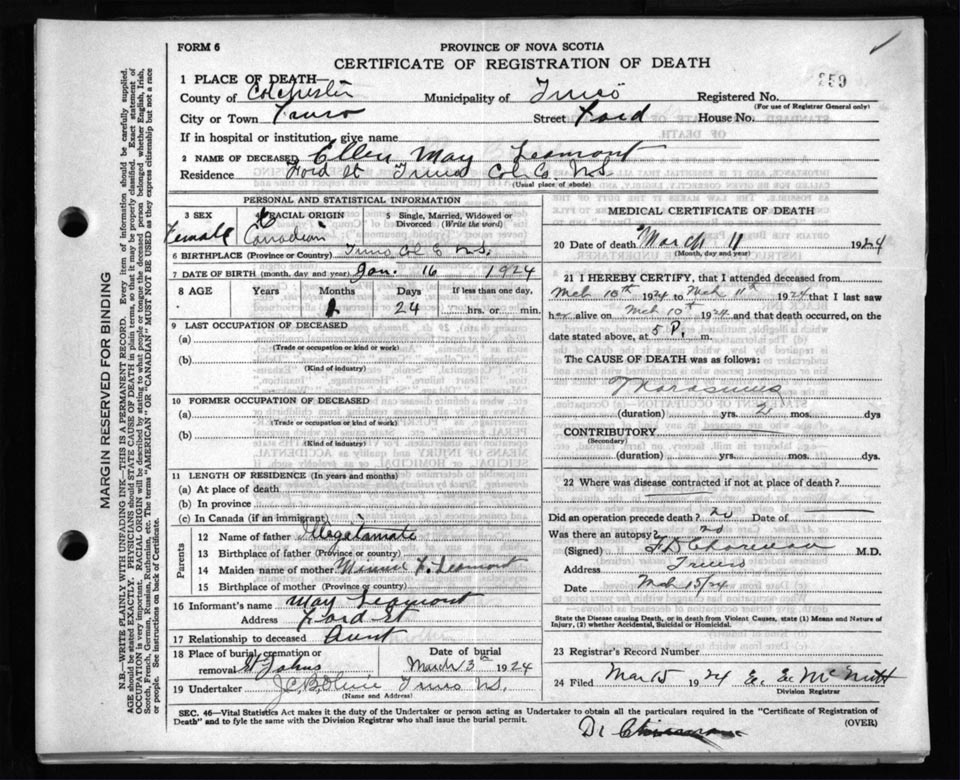 FORM 6
PROVINCE OF NOVA SCOTIA
CERTIFICATE OF REGISTRATION OF DEATH
359
1 PLACE OF DEATH—
County of Colchester Municipality of Truro Registered No.
(For use of Registrar General only)
City or Town Truro Street Ford House No.
If in hospital or institution, give name
2 NAME OF DECEASED Ellen May Leamont
Residence Ford St Truro Col. Co. N.S.
(Usual place of abode)
PERSONAL AND STATISTICAL INFORMATION
3 SEX 4 RACIAL ORIGIN 5 Single, Married, Widowed or Divorced (Write the word)
Female Canadian
6 BIRTHPLACE (Province or Country) Truro Col C N.S.
7 DATE OF BIRTH (month, day and year) Jan. 16 1924
8 AGE Years Months Days If less than one day,
1 24 hrs. or min.
9 LAST OCCUPATION OF DECEASED
(a)
(Trade or occupation or kind or work)
(b)
(Kind of industry)
10 FORMER OCCUPATION OF DECEASED
(a)
(Trade or occupation or kind of work)
(b)
(Kind of industry)
11 LENGTH OF RESIDENCE (In years and months)
(a) At place of death
(b) In province
(c) In Canada (if an immigrant)
Parents
12 Name of father Illegitamate
13 Birthplace of father (Province or country)
14 Maiden name of mother Minnie F. Leamont
15 Birthplace of mother (Province or country)
16 Informant's name May Leamont
Address Ford St
17 Relationship to deceased Aunt
18 Place of burial, cremation or removal St Johns
Date of burial March 3th 1924
19 Undertaker Truro N.S.
(Name and Address)
MEDICAL CERTIFICATE OF DEATH
20 Date of death March 11 1924
(Month, day and year)
21 I HEREBY CERTIFY, that I attended deceased from
Mch 10th 1924 to Mch 11th 1924 that I last saw
her alive on Mch 10th 1924 and that death occurred, on the
date stated above, at 5 P. m.
The CAUSE OF DEATH was as follows:
Marasmus
(duration) yrs. 2 mos. dys
CONTRIBUTORY
(Secondary)
(duration) yrs. mos. dys.
22 Where was disease contracted if not at place of death?
Did an operation precede death? no Date of
Was there an autopsy? no
(Signed) M.D.
Address Truro
Date Mch 15/24
State the Disease causing Death, or in death from Violent Causes, state (1) Means and Nature of
Injury, (2) whether Accidental, Suicidal or Homicidal.
23 Registrar's Record Number
24 Filed Mar 15 1924 E. E. McNutt
Division Registrar
SEC. 46—Vital Statistics Act makes it the duty of the Undertaker or person acting as Undertaker to obtain all the particulars required in the "Certificate of Registration of
Death" and to fyle the same with the Division Registrar who shall issue the burial permit.
(OVER)
Dr
MARGIN RESERVED FOR BINDING
N.B.—WRITE PLAINLY WITH UNFADING INK—THIS IS A PERMANENT RECORD. Every item of information should be carefully supplied.
AGE should be stated EXACTLY. PHYSICIANS should STATE CAUSE OF DEATH in plain terms, so that it may be properly classified. Exact statement of
OCCUPATION is very important. RACIAL ORIGIN will be described by stating to what people or tongue the deceased person belonged whether English, Irish,
Scotch, French, German, Russian, Ruthenian, etc. The terms "AMERICAN" OR "CANADIAN" MUST NOT BE USED as they express citizenship but not a race
of people. See instructions on back of Certificate.